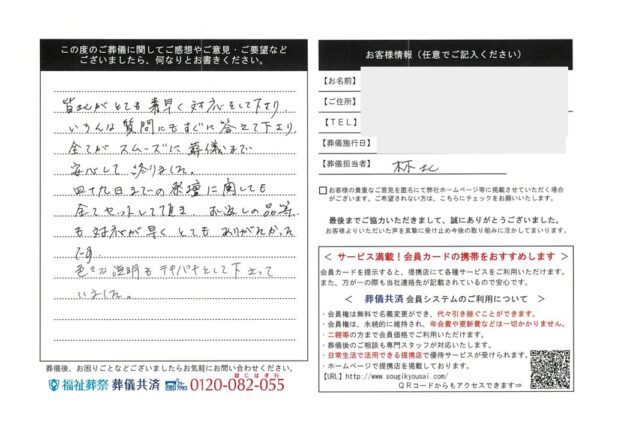 この度のご葬儀に関してご感想やご意見・ご要望など
ございましたら、何なりとお書きください。
皆さんがとても素早く対応をして下さり、
いろんな質問にもすぐに答えて下さり
全てがスムーズに葬儀まで
安心して送りました。
四十九日までの祭壇に関しても
全てセットして頂き お返しの品等
も対応が早くとてもありがたかった
です。
色々な説明もテキパキとして下さって
いました。
葬儀後、お困りごとなどございましたらお気軽にお問い合わせください。
福祉葬祭 葬儀共済 0120-082-055
お客様情報（任意でご記入ください）
【お名前】
【ご住所】
【TEL】
【葬儀施行日】
【葬儀担当者】 林さん
お客様の貴重なご意見を匿名にて弊社ホームページ等に掲載させていただく場合
がございます。ご希望されない方は、こちらにチェックをお願いいたします。
最後までご協力いただきまして、誠にありがとうございました。
お客様よりいただいた声を真摯に受け止め今後の取り組みに活かしてまいります。
＜ サービス満載！会員カードの携帯をおすすめします ＞
会員カードを提示すると、提携店にて各種サービスをご利用いただけます。
また、万が一の際も当社連絡先が記載されているので安心です。
＜ 葬儀共済 会員システムのご利用について ＞
・会員権は無料で名義変更ができ、代々引き継ぐことができます。
・会員権は、永続的に維持され、年会費や更新費などは一切かかりません。
・二親等の方まで会員価格でご利用いただけます。
・葬儀後のご相談も専門スタッフが対応いたします。
・日常生活で活用できる提携店で優待サービスが受けられます。
・ホームページで提携店を掲載しております。
【URL】http://www.sougikyousai.com/
QRコードからもアクセスできます⇒